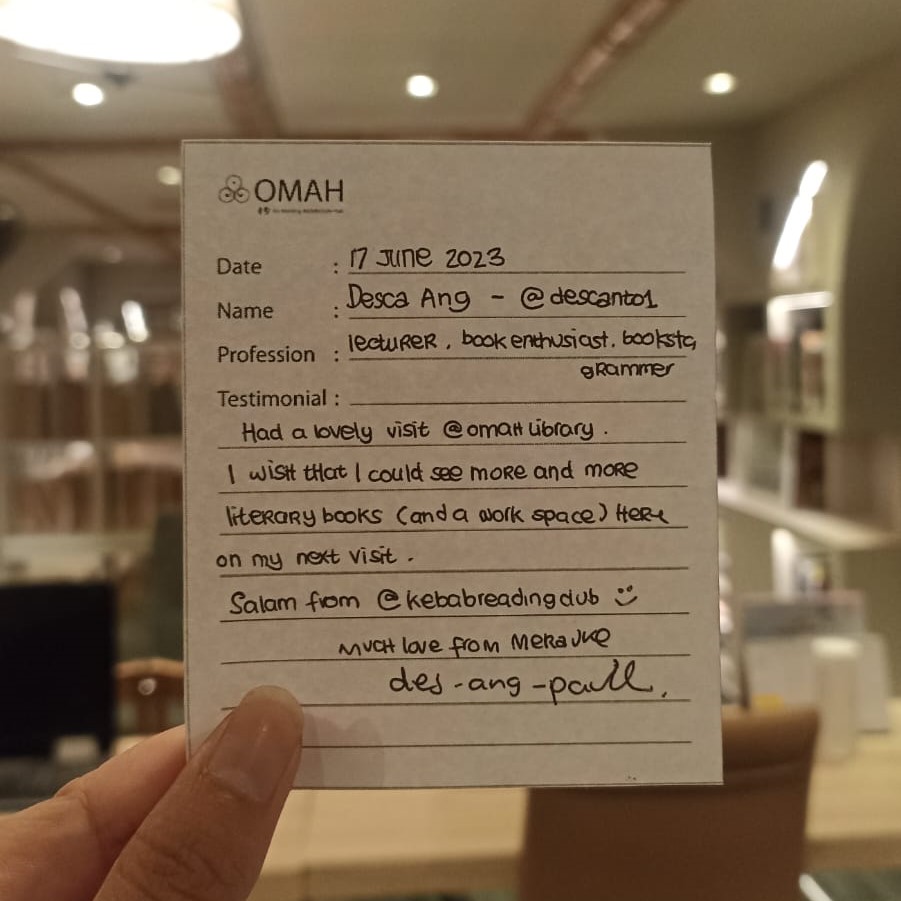 OMAH
Date : 17 June 2023
Name : Desca Ang - @descanto1
Profession : lecturer, book enthusiast, booksta
grammer
Testimonial :
Had a lovely visit @omah library.
I wish that I could see more and more
literary books (and a work space) here
on my next visit.
Salam from @kebabreadingclub
Much love from Merauke
des-ang-paull.